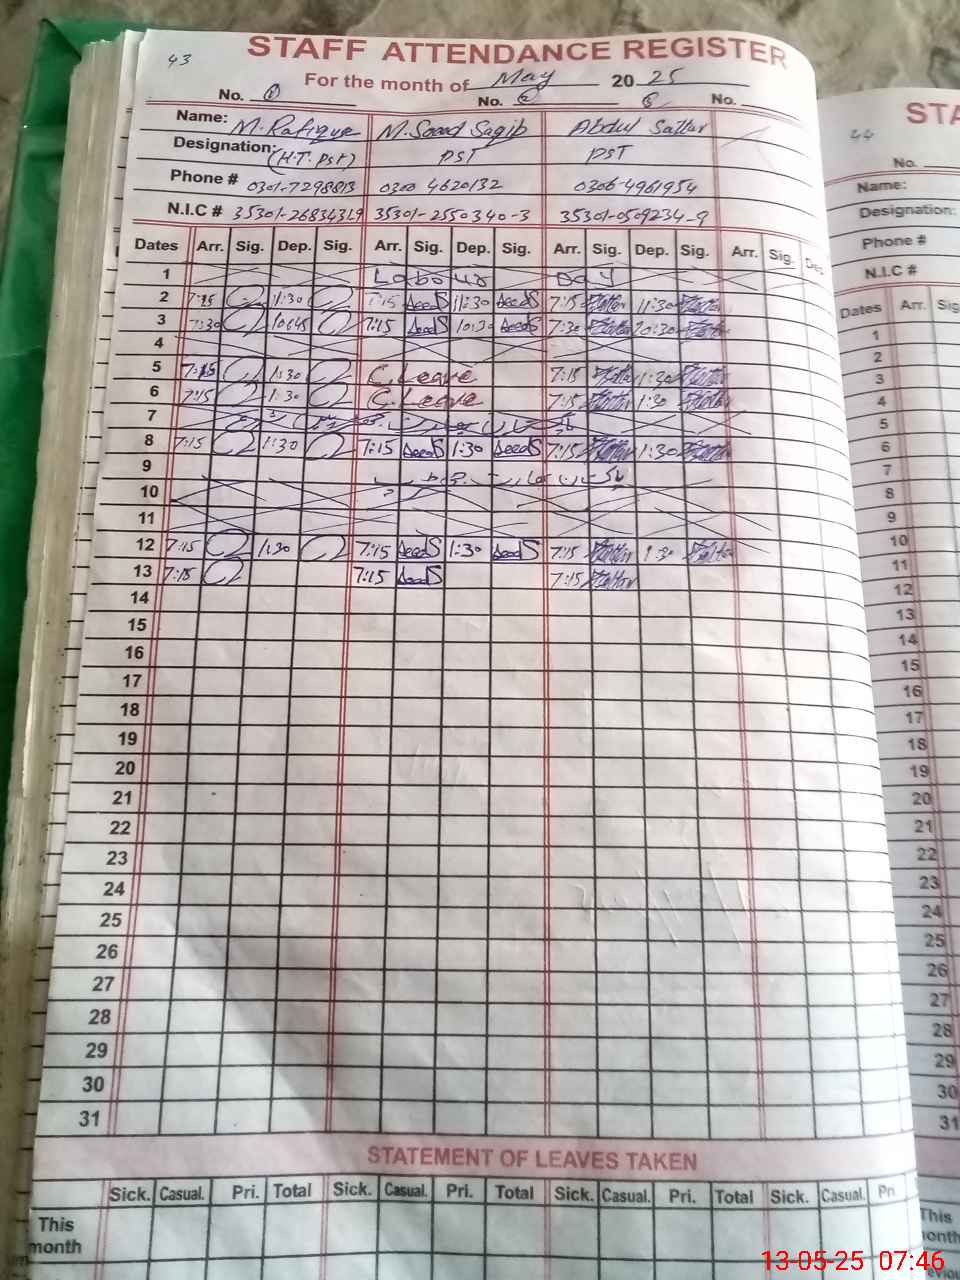 43
STAFF ATTENDANCE REGISTER
For the month of May 2025
No. 1 No. 2 3 No.
Name: M. Rafique M. Saeed Saqib Abdul Sattar
Designation: (H.T. PST) PST PST
Phone # 0301-7298813 0300 4620132 0306-4961954
N.I.C # 35301-2683431.9 35301-2550340-3 35301-0509234-9
Dates Arr. Sig. Dep. Sig. Arr. Sig. Dep. Sig. Arr. Sig. Dep. Sig. Arr. Sig. Dep.
1 Labour Day
2 7:15 1:30 7:15 11:30 7:15 11:30
3 7:30 10:45 7:15 10:30 7:30 10:30
4
5 7:15 1:30 C. Leave 7:15 1:30
6 7:15 1:30 C. Leave 7:15 1:30
7
8 7:15 1:30 7:15 1:30 7:15 1:30
9
10
11
12 7:15 1:30 7:15 1:30 7:15 1:30
13 7:15 7:15 7:15
14
15
16
17
18
19
20
21
22
23
24
25
26
27
28
29
30
31
STATEMENT OF LEAVES TAKEN
Sick. Casual. Pri. Total Sick. Casual. Pri. Total Sick. Casual. Pri. Total Sick. Casual. Pri
This month
44
STA
No.
Name:
Designation:
Phone #
N.I.C #
Dates Arr. Sig
1
2
3
4
5
6
7
8
9
10
11
12
13
14
15
16
17
18
19
20
21
22
23
24
25
26
27
28
29
30
31
This
13-05-25 07:46